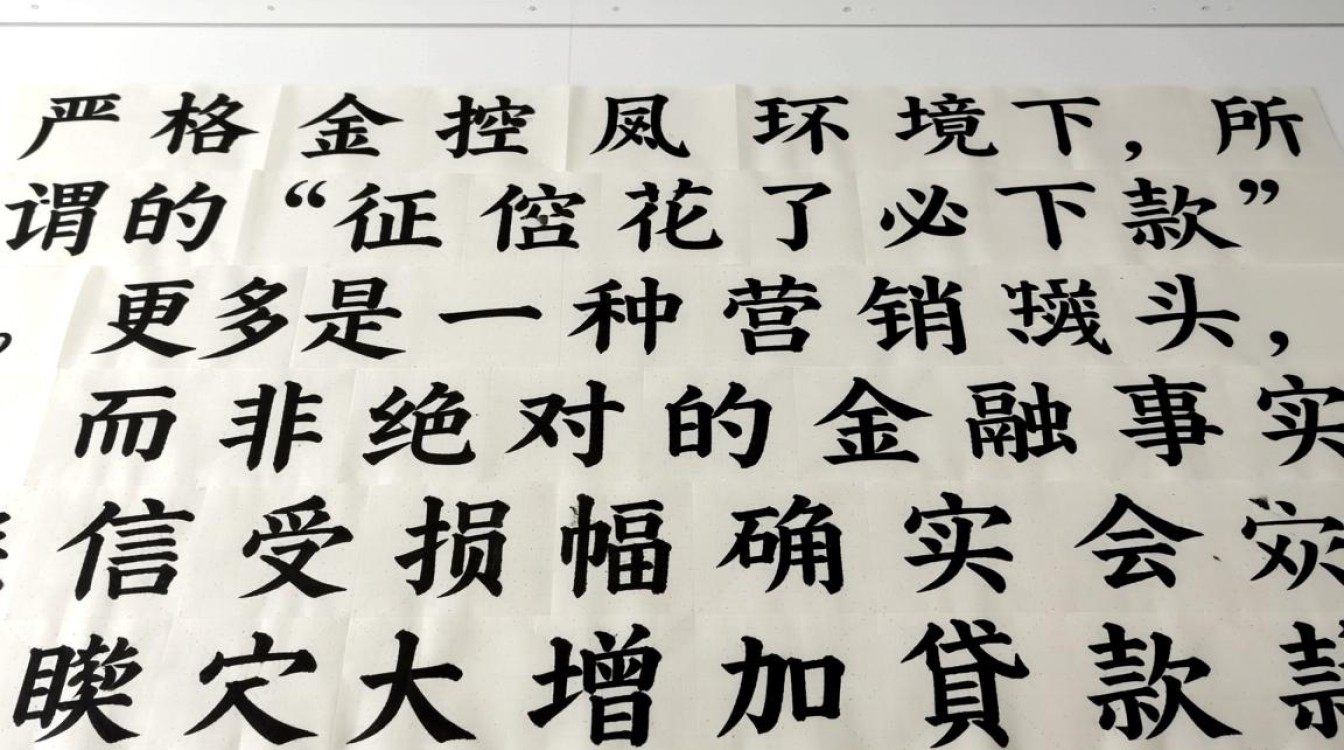 严格金控风环境下，所
谓的“征信花了必下款”
，更多是一种营销头，
而非绝对的金融事实
信受损幅确实会
大增加貸款